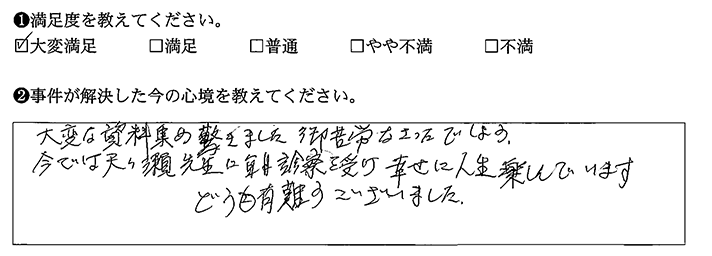 ❶満足度を教えてください。
☑大変満足 □満足 □普通 □やや不満 □不満
❷事件が解決した今の心境を教えてください。
大変な資料集め驚きました 御苦労な立つでしょう。
今では天ヶ瀬先生に診察を受け 幸せに人生楽しんでいます
どうも有難うございました。